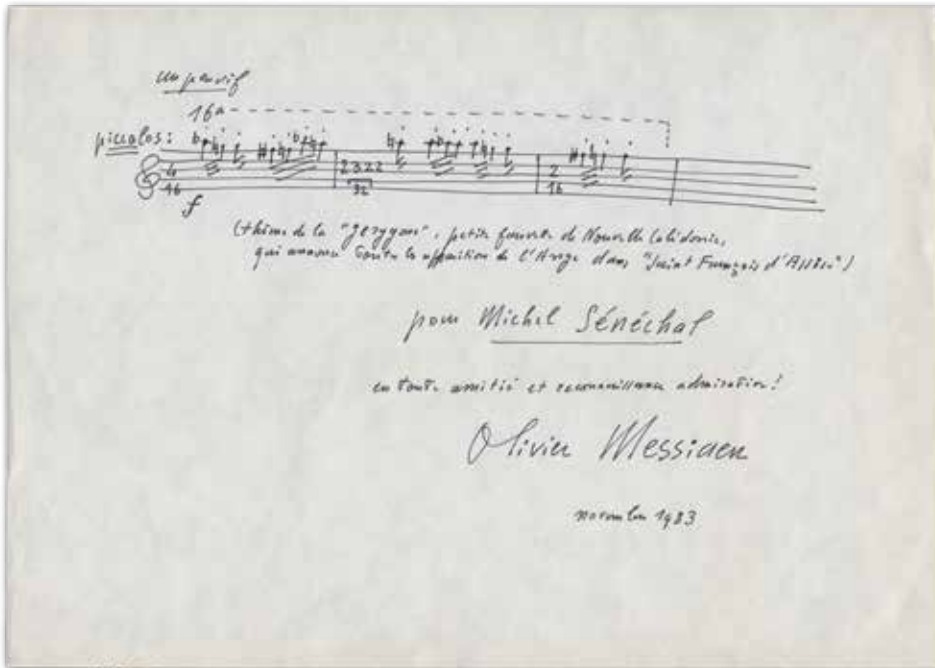 Un peu vif
16a
piccolos:
4 2322 2
16 32 16
f
(thème de la "gerygone", petite fauvette de Nouvelle Calédonie,
qui annonce toute apparition de l'Ange dans "Saint François d'Assise")
pour Michel Sénéchal
en toute amitié et reconnaissante admiration!
Olivier Messiaen
novembre 1983